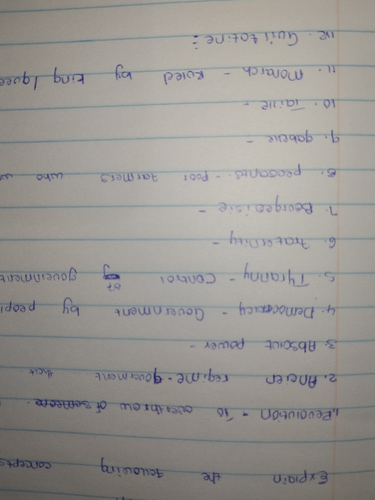 Explain the following concepts
1. Revolution - To overthrow of
2. Ancien regime - goverment that
3. Absolut power -
4. Democracy - Government by peopl
5. Tyranny - Control of government
6. Fraternity -
7. Bourgeoisie -
8. peasants - Poor farmers who w
9. gabelle -
10. Taille -
11. Monarch - Ruled by king/quee
12. Guillotine :